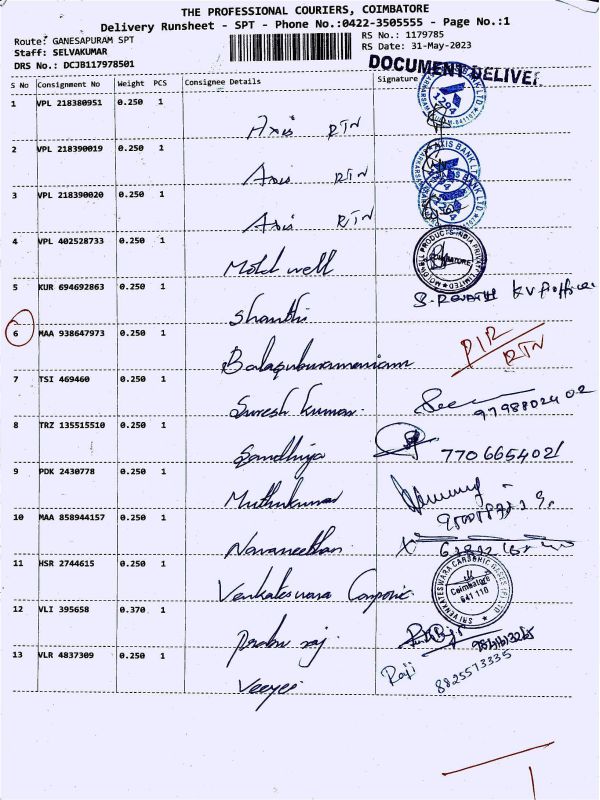 THE PROFESSIONAL COURIERS, COIMBATORE
Delivery Runsheet - SPT - Phone No.:0422-3505555 - Page No.:1
Route: GANESAPURAM SPT
RS No.: 1179785
Staff: SELVAKUMAR
RS Date: 31-May-2023
DRS No.: DCJB117978501
DOCUMENT DELIVER
S No Consignment No Weight PCS Consignee Details Signature
1 VPL 218380951 0.250 1
Axis RTN
2 VPL 218390019 0.250 1
AXIS BANK LTD
Axis RTN
3 VPL 218390020 0.250 1
Axis RTN
4 VPL 402528733 0.250 1
Mold well
COIMBATORE
5 KUR 694692863 0.250 1
Shanthi
6 MAA 938647973 0.250 1
Balasubramaniam
RTN
7 TSI 469460 0.250 1
Suresh Kumar
9798802402
8 TRZ 135515510 0.250 1
Sandhiya
770665402
9 PDK 2430778 0.250 1
Muthukumar
10 MAA 858944157 0.250 1
Navaneethan
11 HSR 2744615 0.250 1
Venkateswara Carbonic
SRI VENKATESWARA CARBONIC GASES (P) LTD
Coimbatore
641 110
12 VLI 395658 0.370 1
Prabu raj
13 VLR 4837309 0.250 1
Raji
8825573335